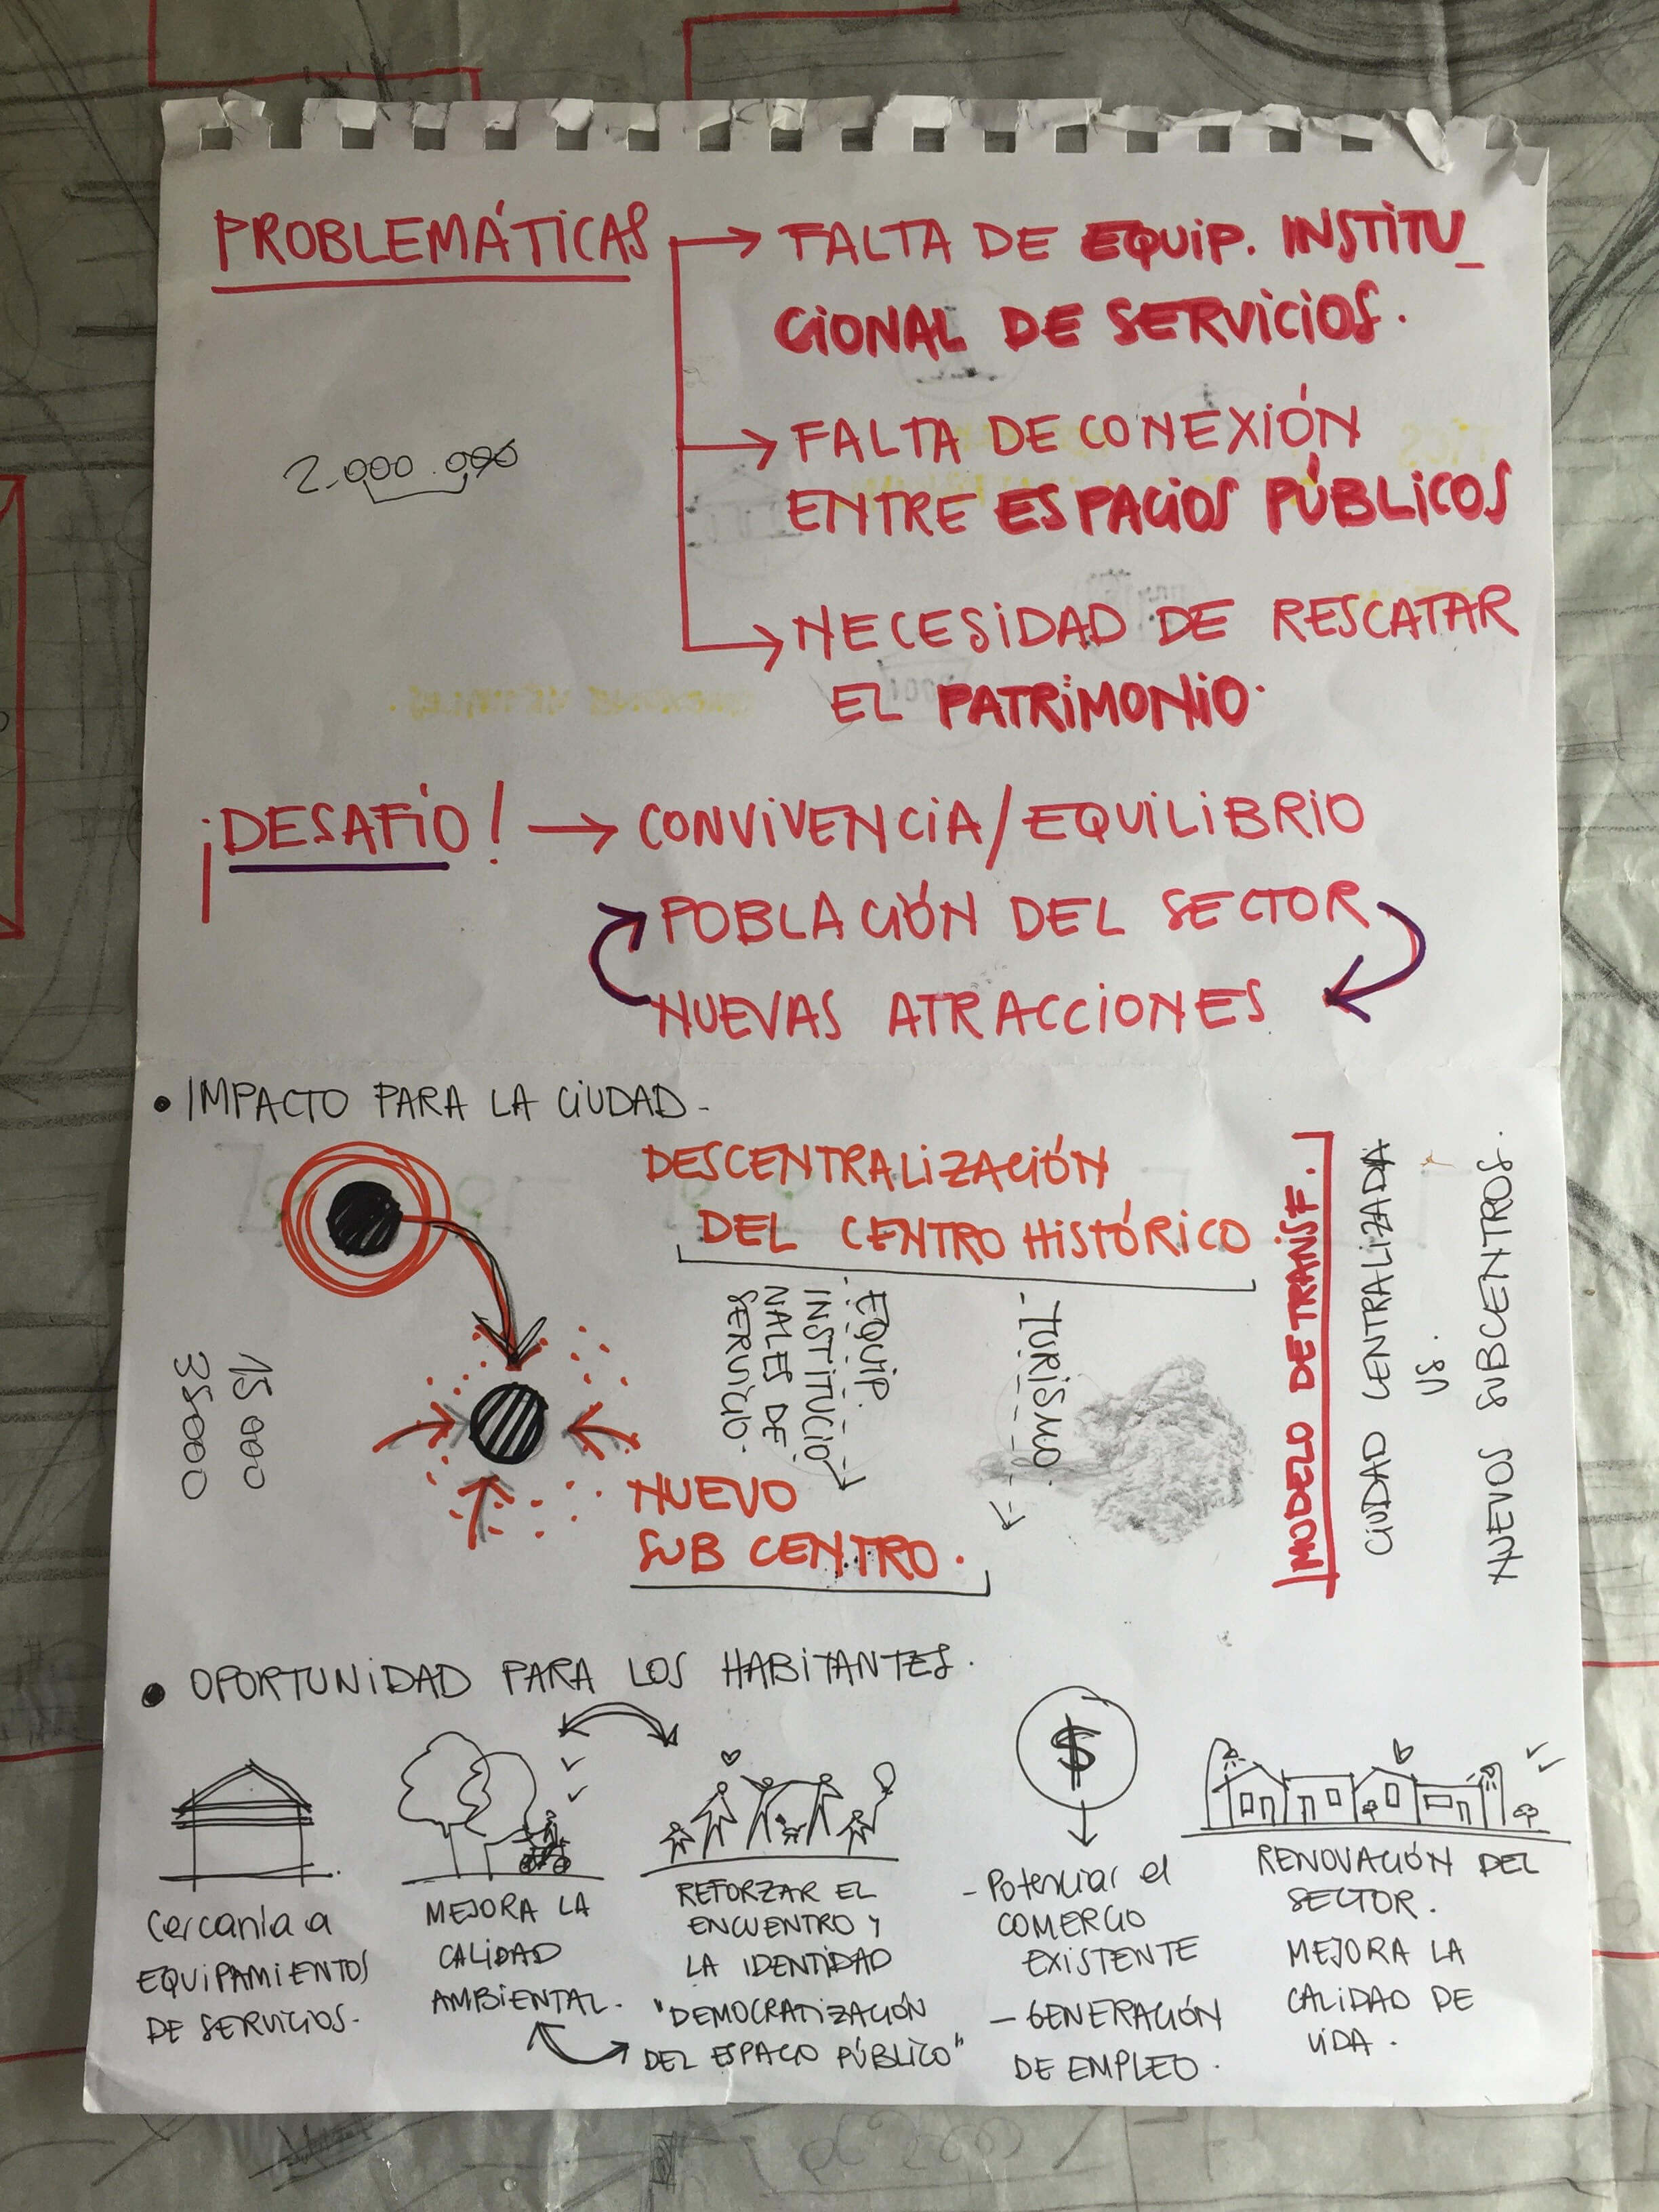 PROBLEMÁTICAS
FALTA DE EQUIP. INSTITU_
CIONAL DE SERVICIOS.
2.000.000
FALTA DE CONEXIÓN
ENTRE ESPACIOS PÚBLICOS
NECESIDAD DE RESCATAR
EL PATRIMONIO.
¡DESAFÍO!
CONVIVENCIA/EQUILIBRIO
POBLACIÓN DEL SECTOR
NUEVAS ATRACCIONES
• IMPACTO PARA LA CIUDAD-
DESCENTRALIZACIÓN
DEL CENTRO HISTÓRICO
EQUIP.
INSTITUCIO
NALES DE
SERVICIO.
TURISMO.
15 000
35000
NUEVO
SUB CENTRO.
MODELO DE TRANSF.
CIUDAD CENTRALIZADA
VS.
NUEVOS SUBCENTROS.
• OPORTUNIDAD PARA LOS HABITANTES.
Cercanía a
EQUIPAMIENTOS
DE SERVICIOS-
MEJORA LA
CALIDAD
AMBIENTAL.
REFORZAR EL
ENCUENTRO Y
LA IDENTIDAD
"DEMOCRATIZACIÓN
DEL ESPACIO PÚBLICO"
$
- Potenciar el
COMERCIO
EXISTENTE
- GENERACIÓN
DE EMPLEO.
RENOVACIÓN DEL
SECTOR.
MEJORA LA
CALIDAD DE
VIDA.